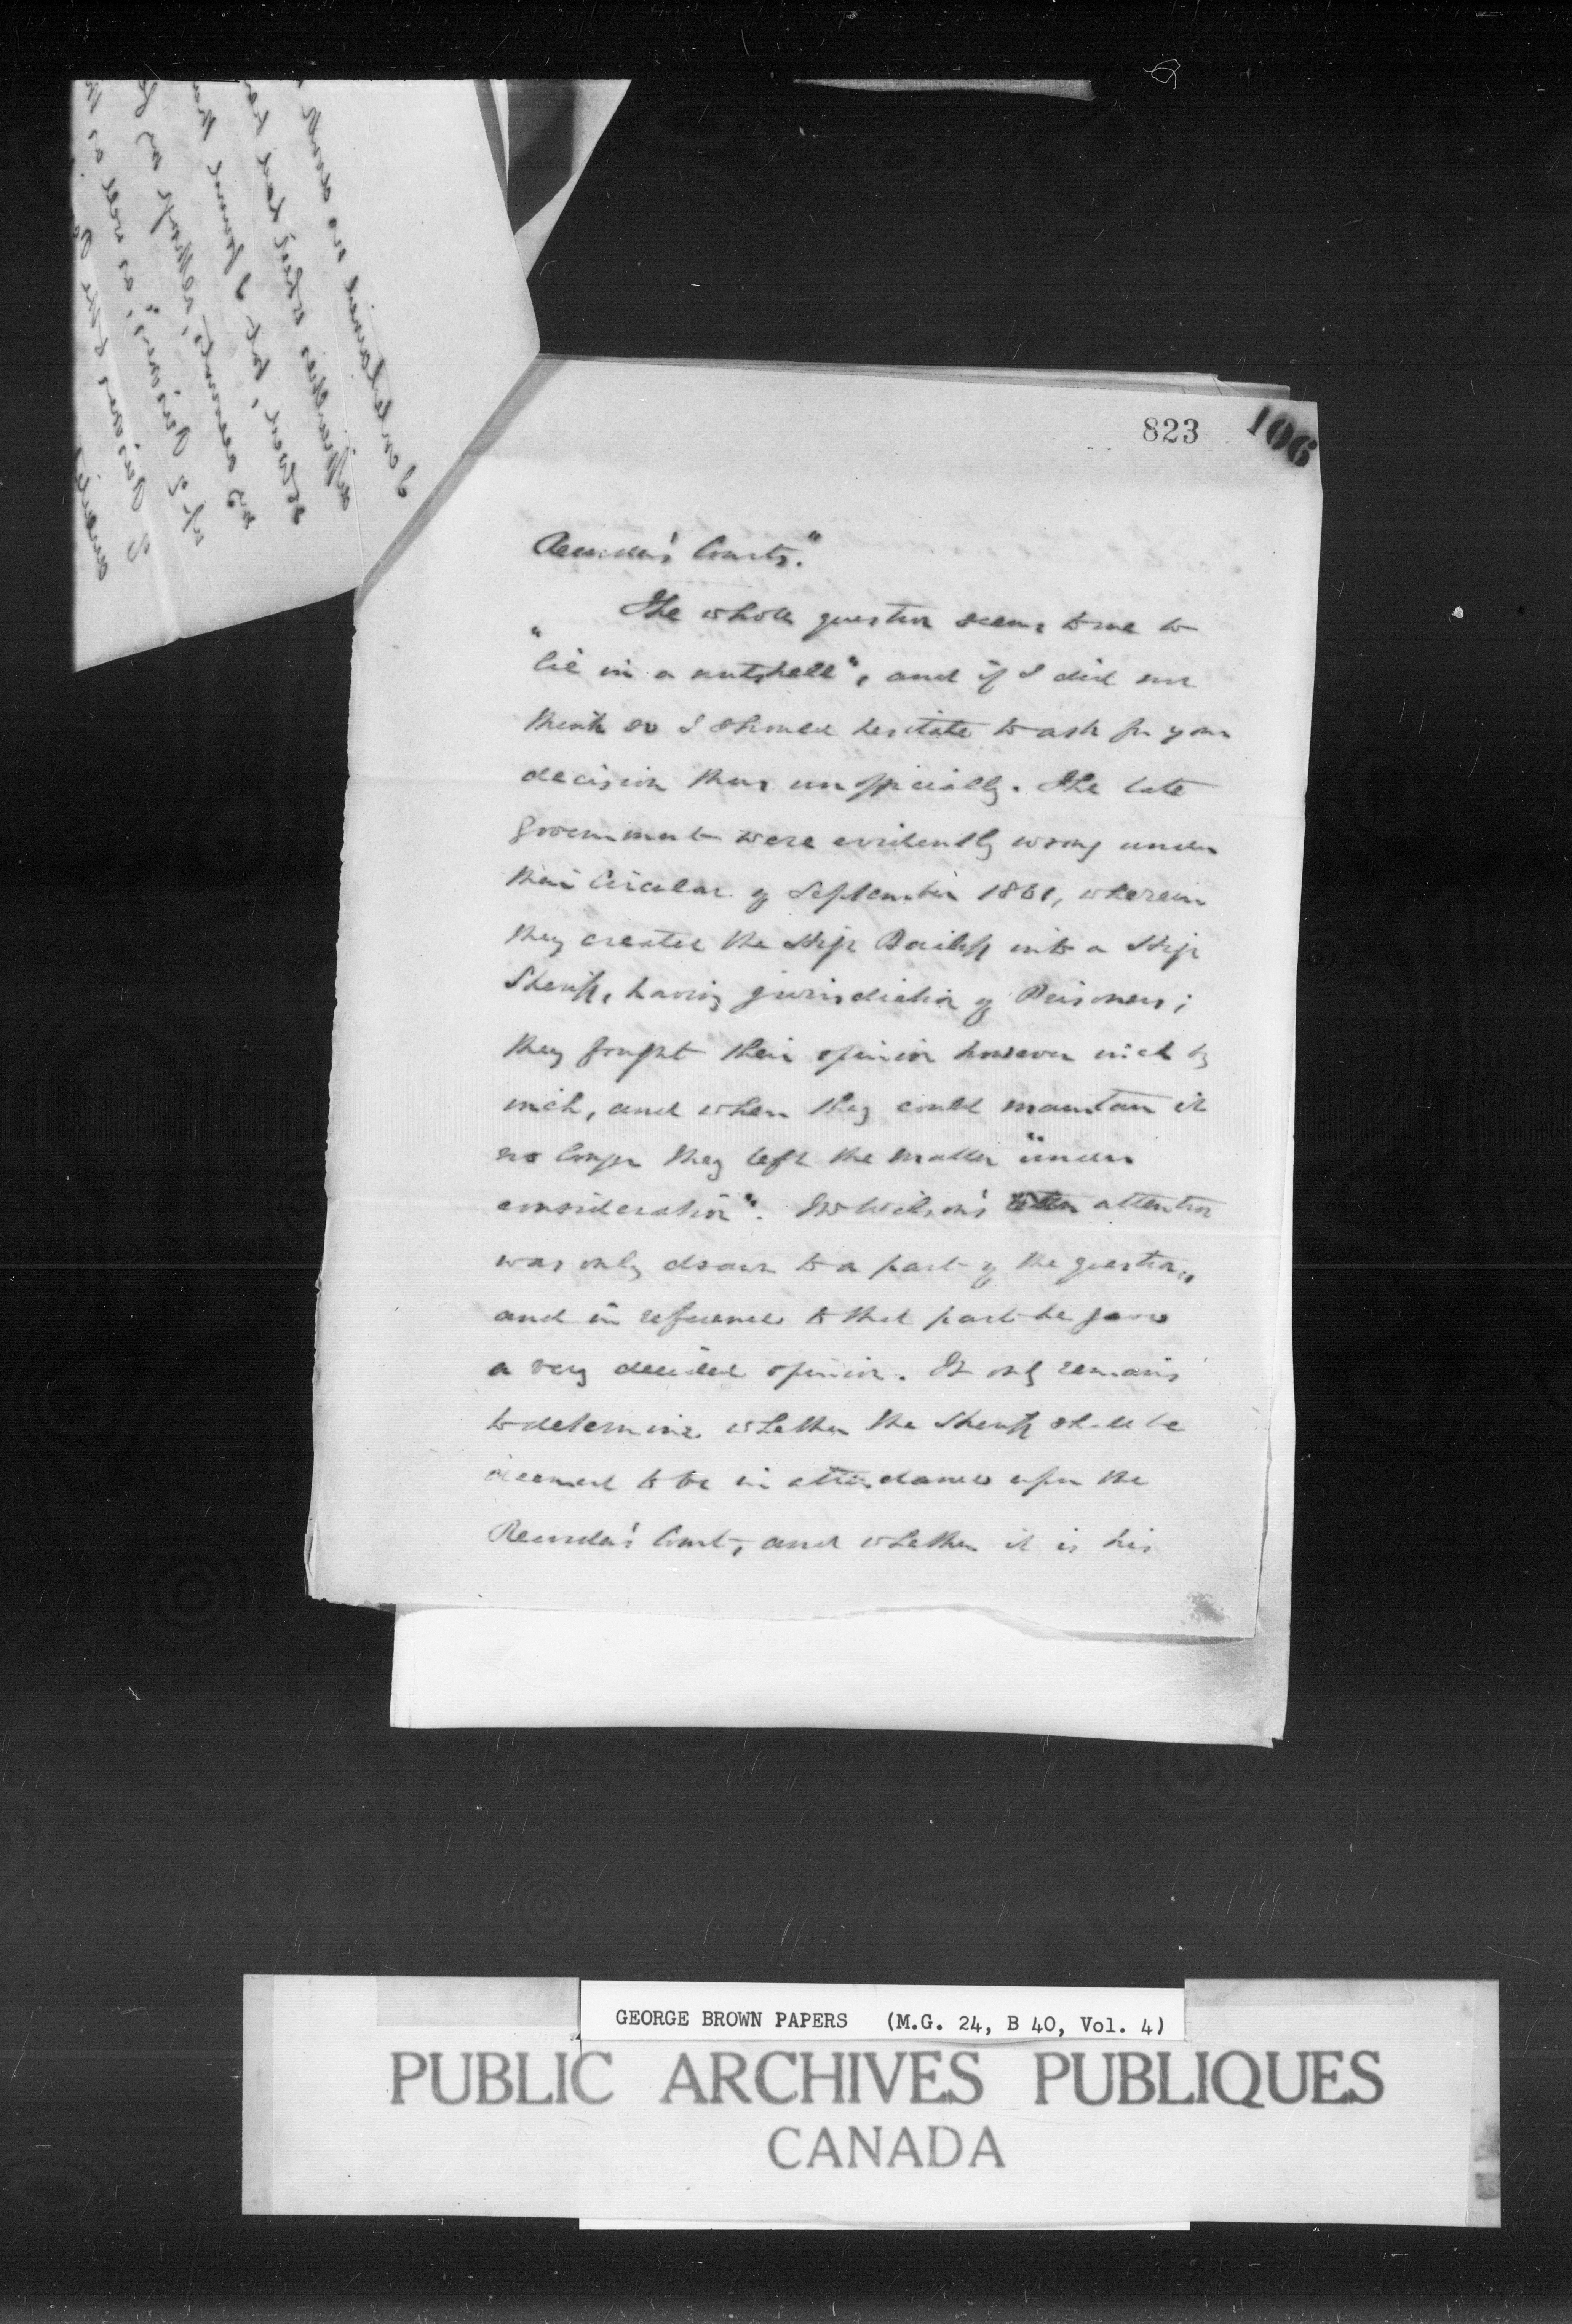 823
106
Recorder's Courts."
The whole question seems to me to
"lie in a nutshell", and if I did not
think so I should hesitate to ask for your
decision thus unofficially. The late
Government were evidently wrong under
their Circular of September 1861, wherein
they created the High Bailiff into a High
Sheriff, having jurisdiction of Prisoners;
they fought their opinion however inch by
inch, and when they could maintain it
no longer they left the matter "under
consideration". Mr Wilson's attention
was only drawn to a part of the question,
and in reference to that part he gave
a very decided opinion. It only remains
to determine whether the Sheriff shall be
deemed to be in attendance upon the
Recorder's Court, and whether it is his
GEORGE BROWN PAPERS (M.G. 24, B 40, Vol. 4)
PUBLIC ARCHIVES PUBLIQUES
CANADA